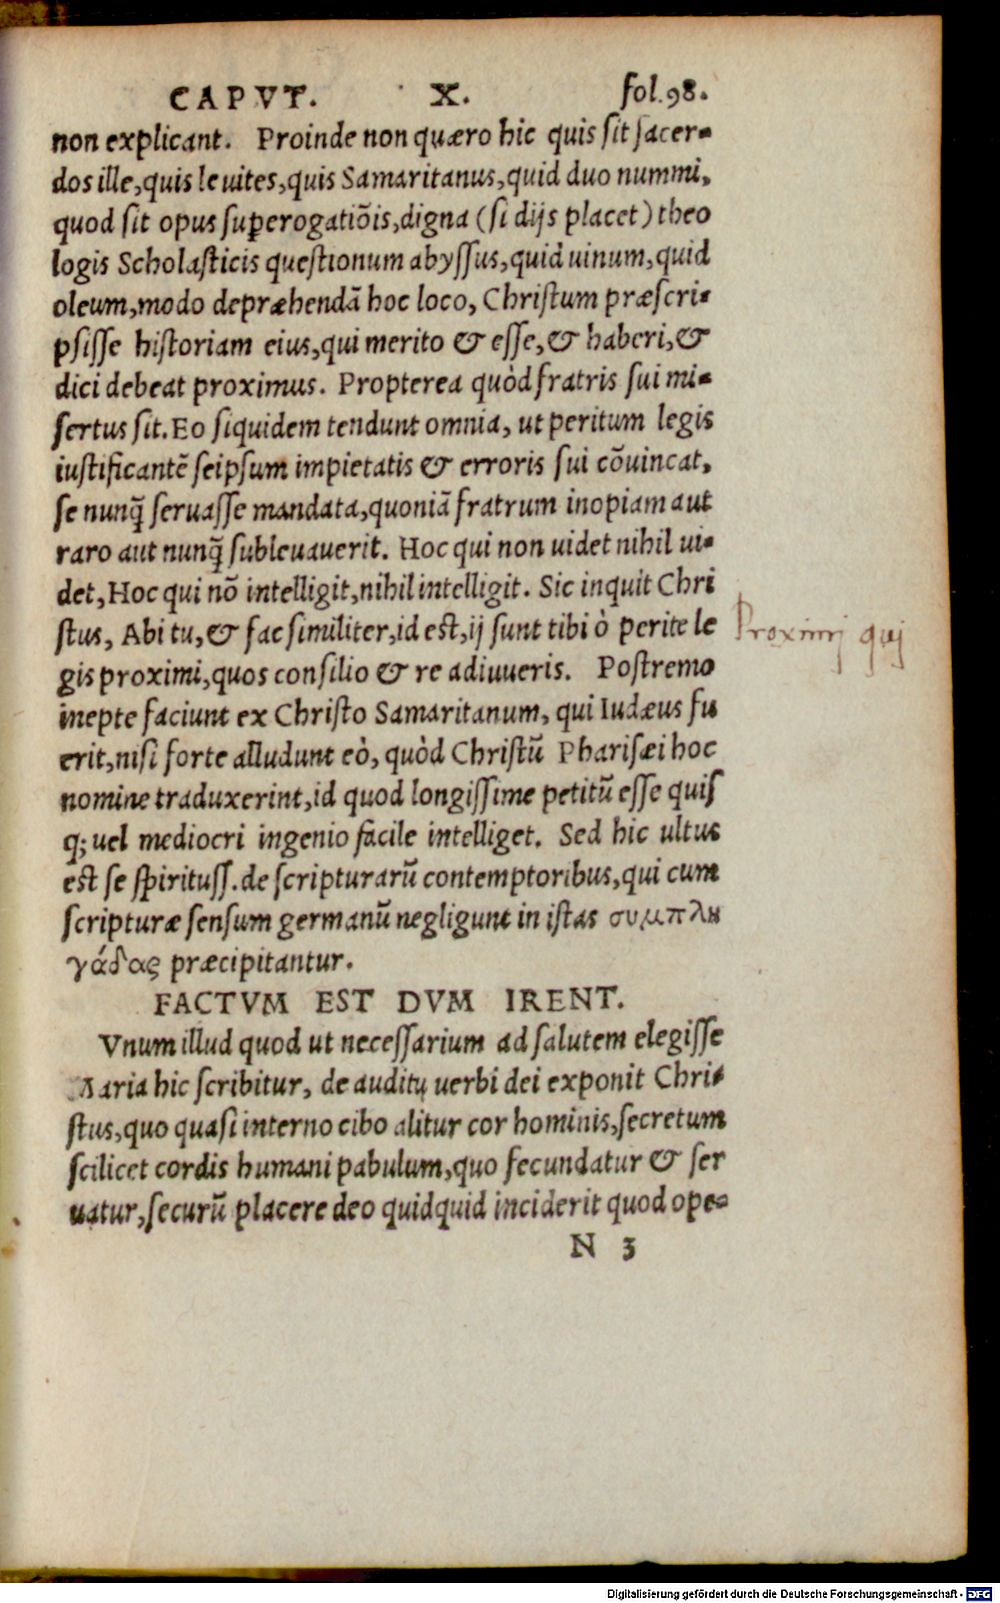 CAPVT. X. fol.98.
non explicant. Proinde non quæro hic quis sit sacer-
dos ille, quis leuites, quis Samaritanus, quid duo nummi,
quod sit opus superogatiõis, digna (si dijs placet) theo
logis Scholasticis questionum abyssus, quid uinum, quid
oleum, modo depræhendã hoc loco, Christum præscri-
psisse historiam eius, qui merito & esse, & haberi, &
dici debeat proximus. Propterea quòd fratris sui mi-
sertus sit. Eo siquidem tendunt omnia, ut peritum legis
iustificantẽ seipsum impietatis & erroris sui cõuincat,
se nunq̃ seruasse mandata, quoniã fratrum inopiam aut
raro aut nunq̃ subleuauerit. Hoc qui non uidet nihil ui-
det, Hoc qui nõ intelligit, nihil intelligit. Sic inquit Chri
stus, Abi tu, & fac similiter, id est, ij sunt tibi ò perite le
Proximj quj
gis proximi, quos consilio & re adiuueris. Postremo
inepte faciunt ex Christo Samaritanum, qui Iudæus fu
erit, nisi forte alludunt eò, quòd Christũ Pharisæi hoc
nomine traduxerint, id quod longissime petitũ esse quis
q; uel mediocri ingenio facile intelliget. Sed hic ultus
est se spirituss. de scripturarũ contemptoribus, qui cum
scripturæ sensum germanũ negligunt in istas συμπλη
γάδας præcipitantur.
FACTVM EST DVM IRENT.
Vnum illud quod ut necessarium ad salutem elegisse
Maria hic scribitur, de auditu uerbi dei exponit Chri-
stus, quo quasi interno cibo alitur cor hominis, secretum
scilicet cordis humani pabulum, quo fecundatur & ser
uatur, securũ placere deo quidquid inciderit quod ope-
N 3
Digitalisierung gefördert durch die Deutsche Forschungsgemeinschaft - DFG